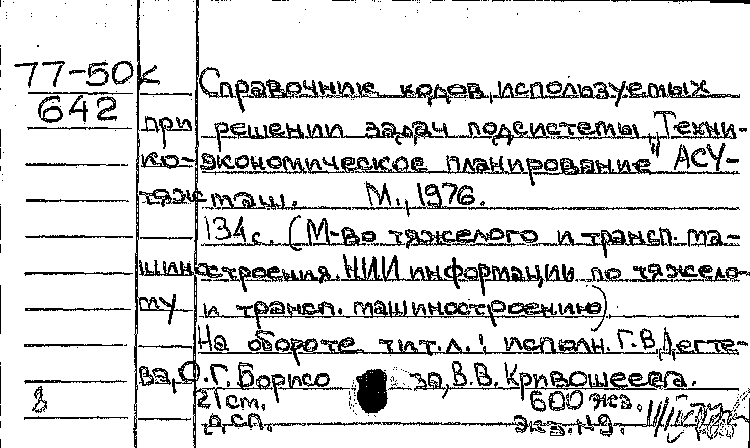 77-50к
642
Справочник кодов, используемых
при решении задач подсистемы „Техни-
ко-экономическое планирование" АСУ-
тяжмаш. М., 1976.
134 с. (М-во тяжелого и трансп. ма-
шиностроения. НИИ информации по тяжело-
му и трансп. машиностроению)
На обороте тит. л.: исполн. Г.В. Дегте-
ва, О.Г. Борисо ва, В.В. Кривошеева.
8 21 ст. 600 экз.
Дсп. экз. №9.